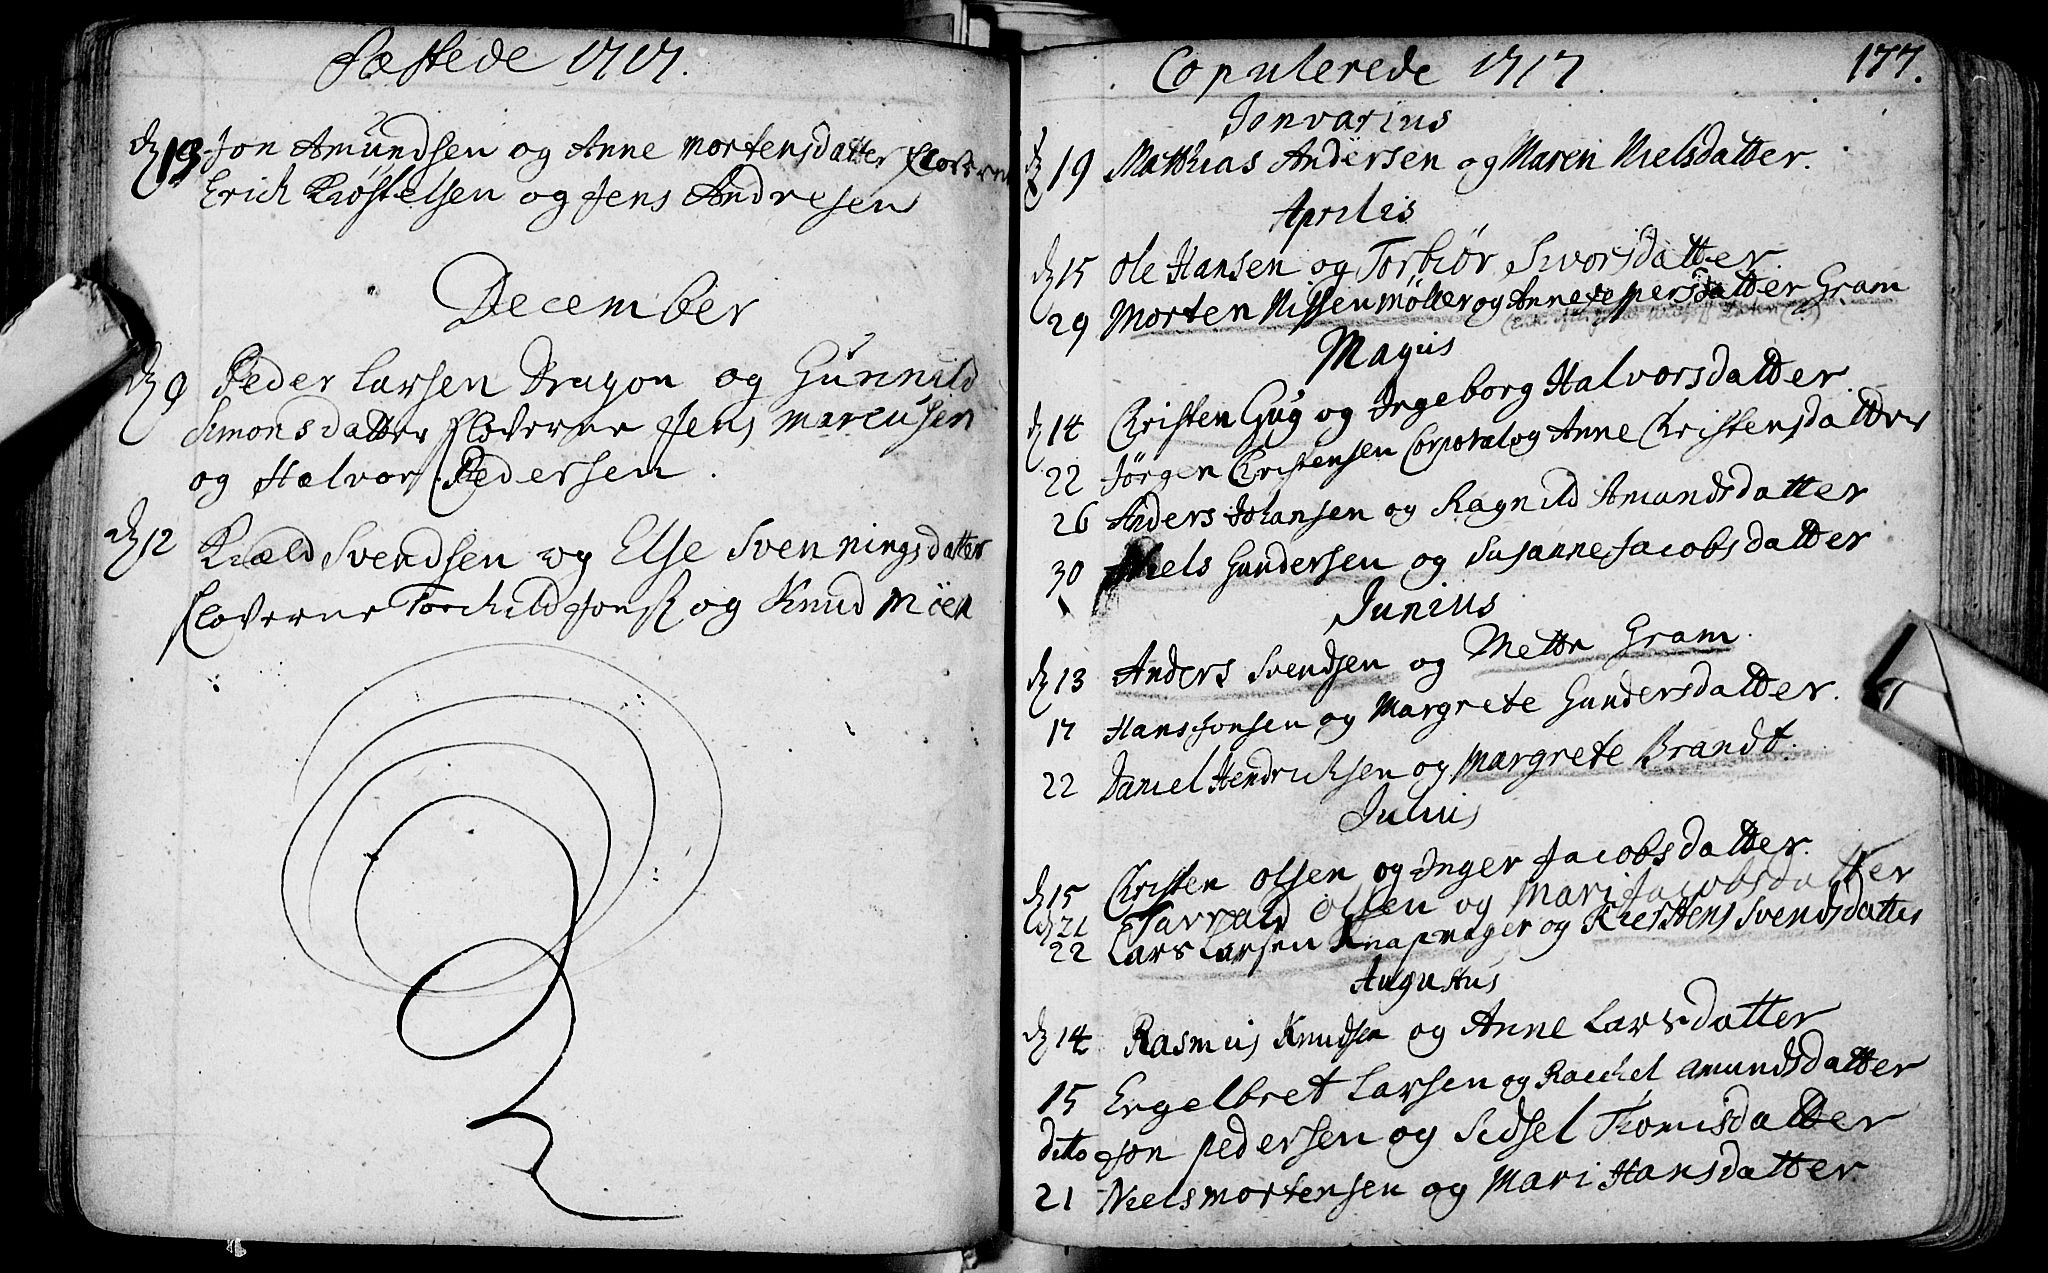 Fæstede 1717.
d 13 Jon Amundsen og Anne Mortensdatter floverne
Erich Kiøstelsen og Jens Andresen
December
d 9 Peder Larsen Dragon og Gunnild
Simonsdatter floverne Jens Marcusen
og Halvor Pedersen.
d 12 Kiæld Svendsen og Else Svenningsdatter
floverne Torchild Jons og Knud Möen
Copulerede 1717. 177.
Janvarius
d 19 Matthias Andersen og Maren Nielsdatter.
Aprilis
d 15 Ole Hansen og Torbiør Sivorsdatter.
29 Morten Nissen Møller og Anne Jeppersdatter Gram
Mayus
d 14 Christen Gug og Ingeborg Halvorsdatter.
22 Jørgen Christensen Corporal og Anne Christensdatter
26 Anders Johansen og Ragnild Amundsdatter
30 Niels Gundersen og Susanne Jacobsdatter
Junius
d 13 Anders Svendsen og Mette Gram.
17 Hans Jonsen og Margrete Gundersdatter.
22 Daniel Hendrichsen og Margrete Brandt.
Julius
d 15 Christen Olsen og Inger Jacobsdatter.
d 21 Tarvald Olsen og Mari Jacobsdatter
22 Lars Larsen Knapmager og Kierstens Svendsdatter
Augustus
d 14 Rasmus Knudsen og Anne Larsdatter
15 Engelbret Larsen og Raechel Amundsdatter
ditto Jon Pedersen og Sidsel Thomisdatter
21 Niels Mortensen og Mari Hansdatter.